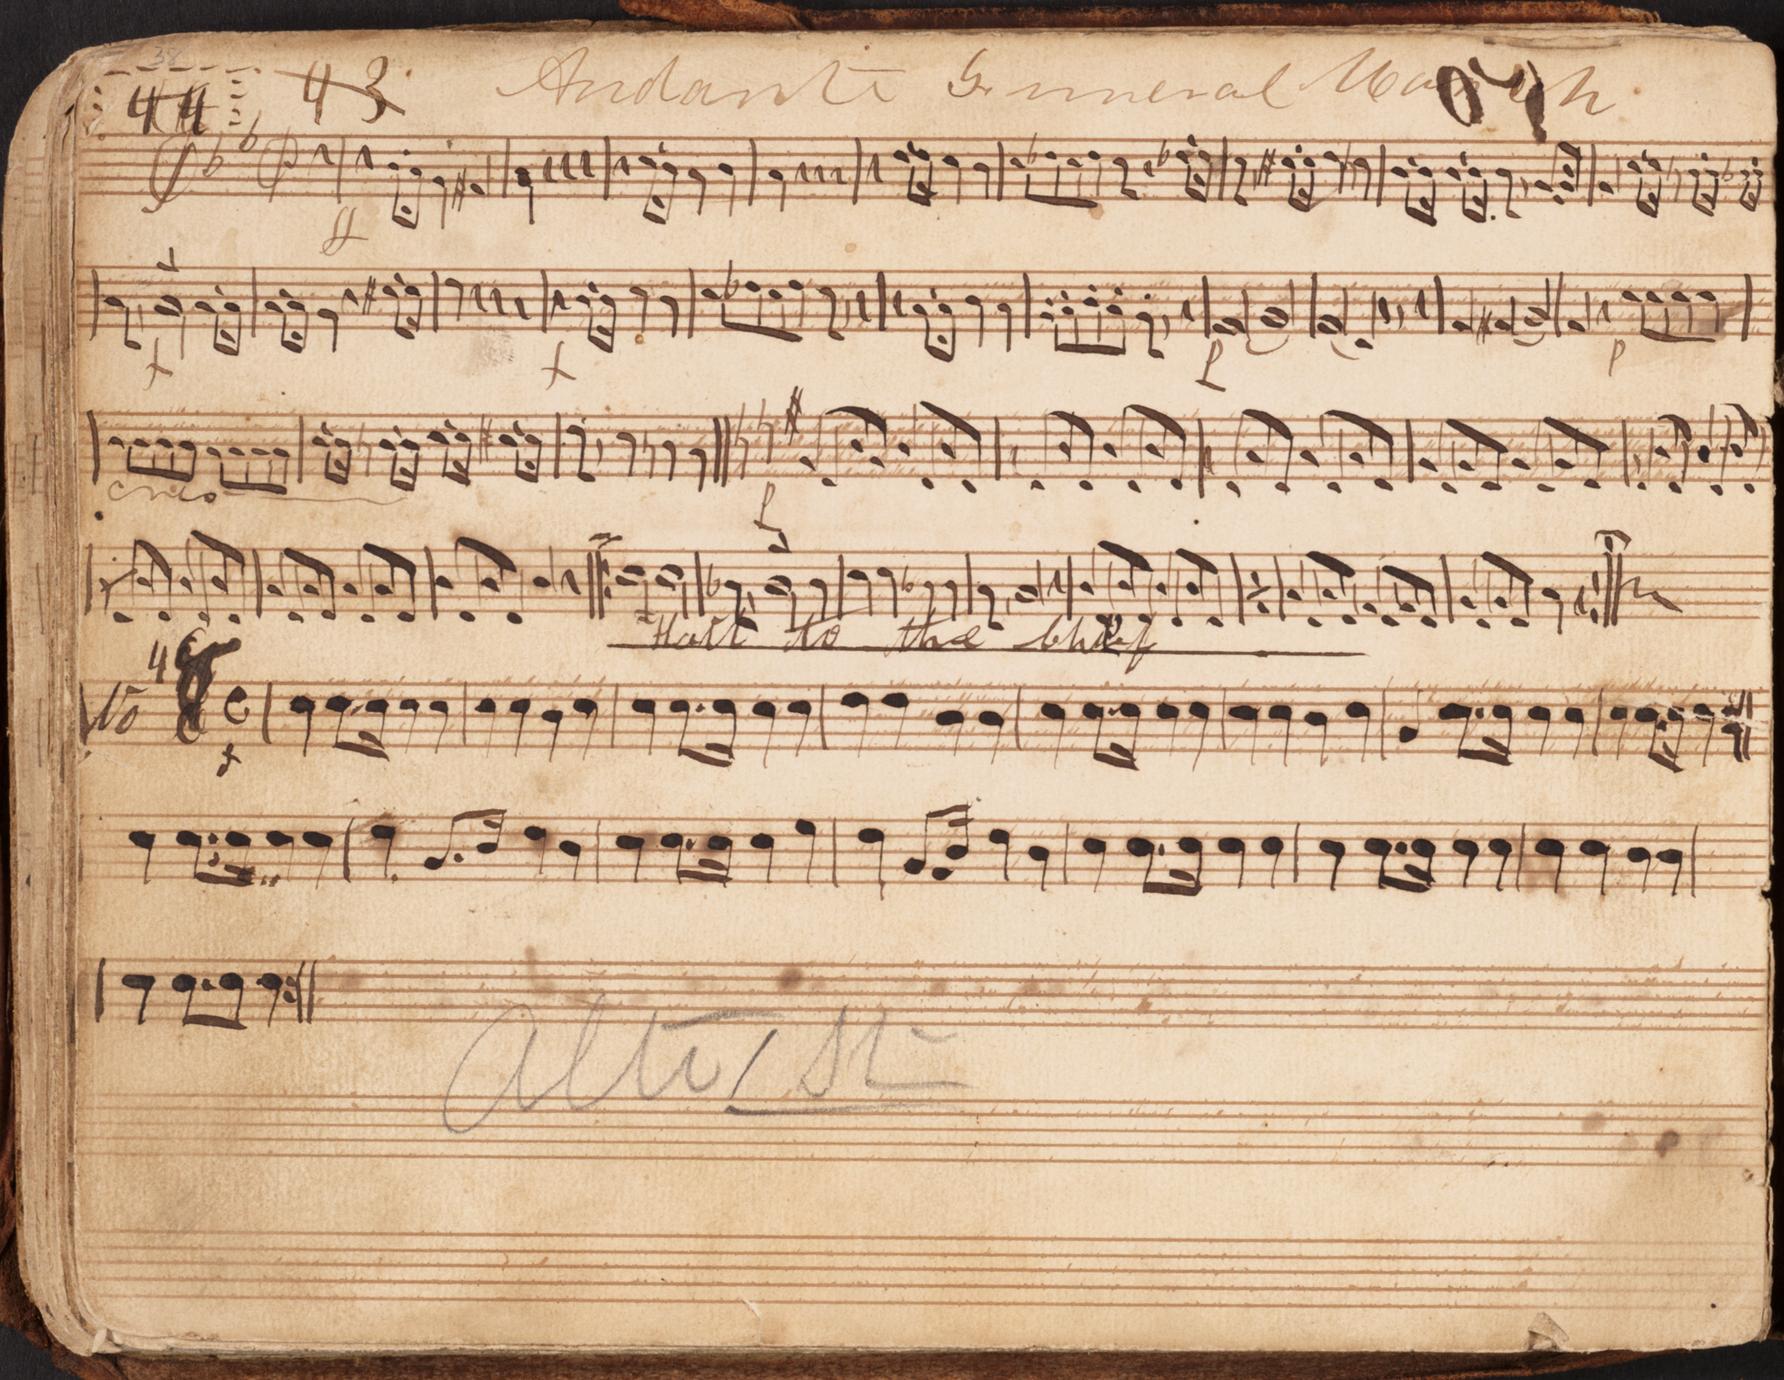 38
44 43 Andante Funeral March
ff
f f p p
cres
p
Hail to the Chief
No 4
f
Alto 1st